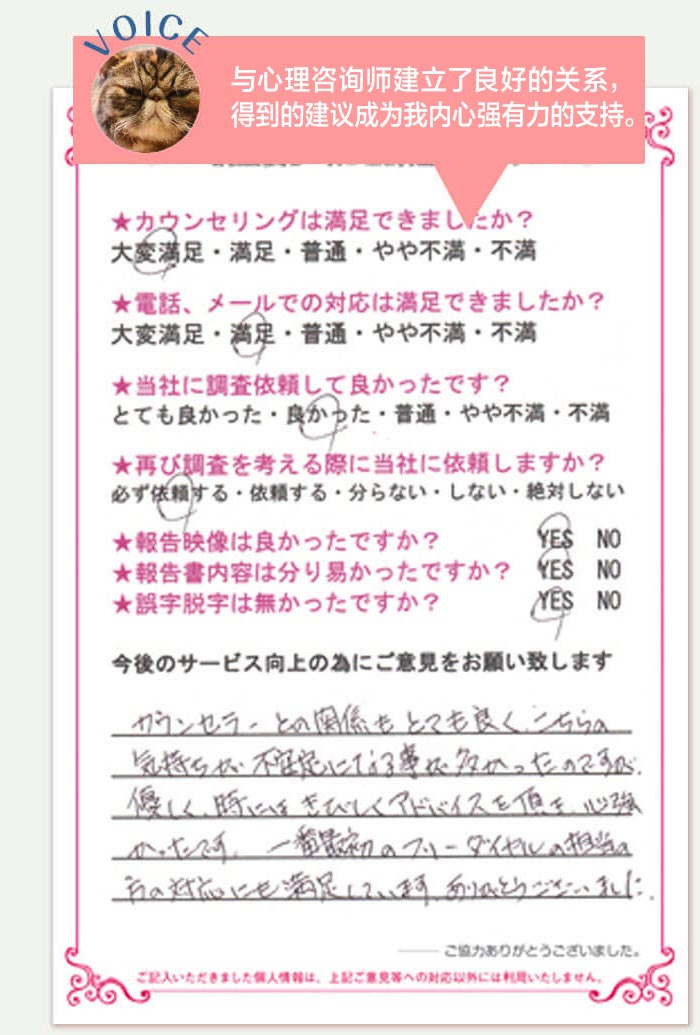 VOICE
与心理咨询师建立了良好的关系，
得到的建议成为我内心强有力的支持。
★カウンセリングは満足できましたか？
大変満足・満足・普通・やや不満・不満
★電話、メールでの対応は満足できましたか？
大変満足・満足・普通・やや不満・不満
★当社に調査依頼して良かったです？
とても良かった・良かった・普通・やや不満・不満
★再び調査を考える際に当社に依頼しますか？
必ず依頼する・依頼する・分らない・しない・絶対しない
★報告映像は良かったですか？ YES NO
★報告書内容は分り易かったですか？ YES NO
★誤字脱字は無かったですか？ YES NO
今後のサービス向上の為にご意見をお願い致します
カウンセラーとの関係もとても良く、こちらの
気持ちが不安定になる事が多かったのですが、
優しく、時にはきびしくアドバイスを頂き、心強
かったです。一番最初のフリーダイヤルの担当の
方の対応にも満足しています。ありがとうございました。
ご協力ありがとうございました。
ご記入いただきました個人情報は、上記ご意見等への対応以外には利用いたしません。